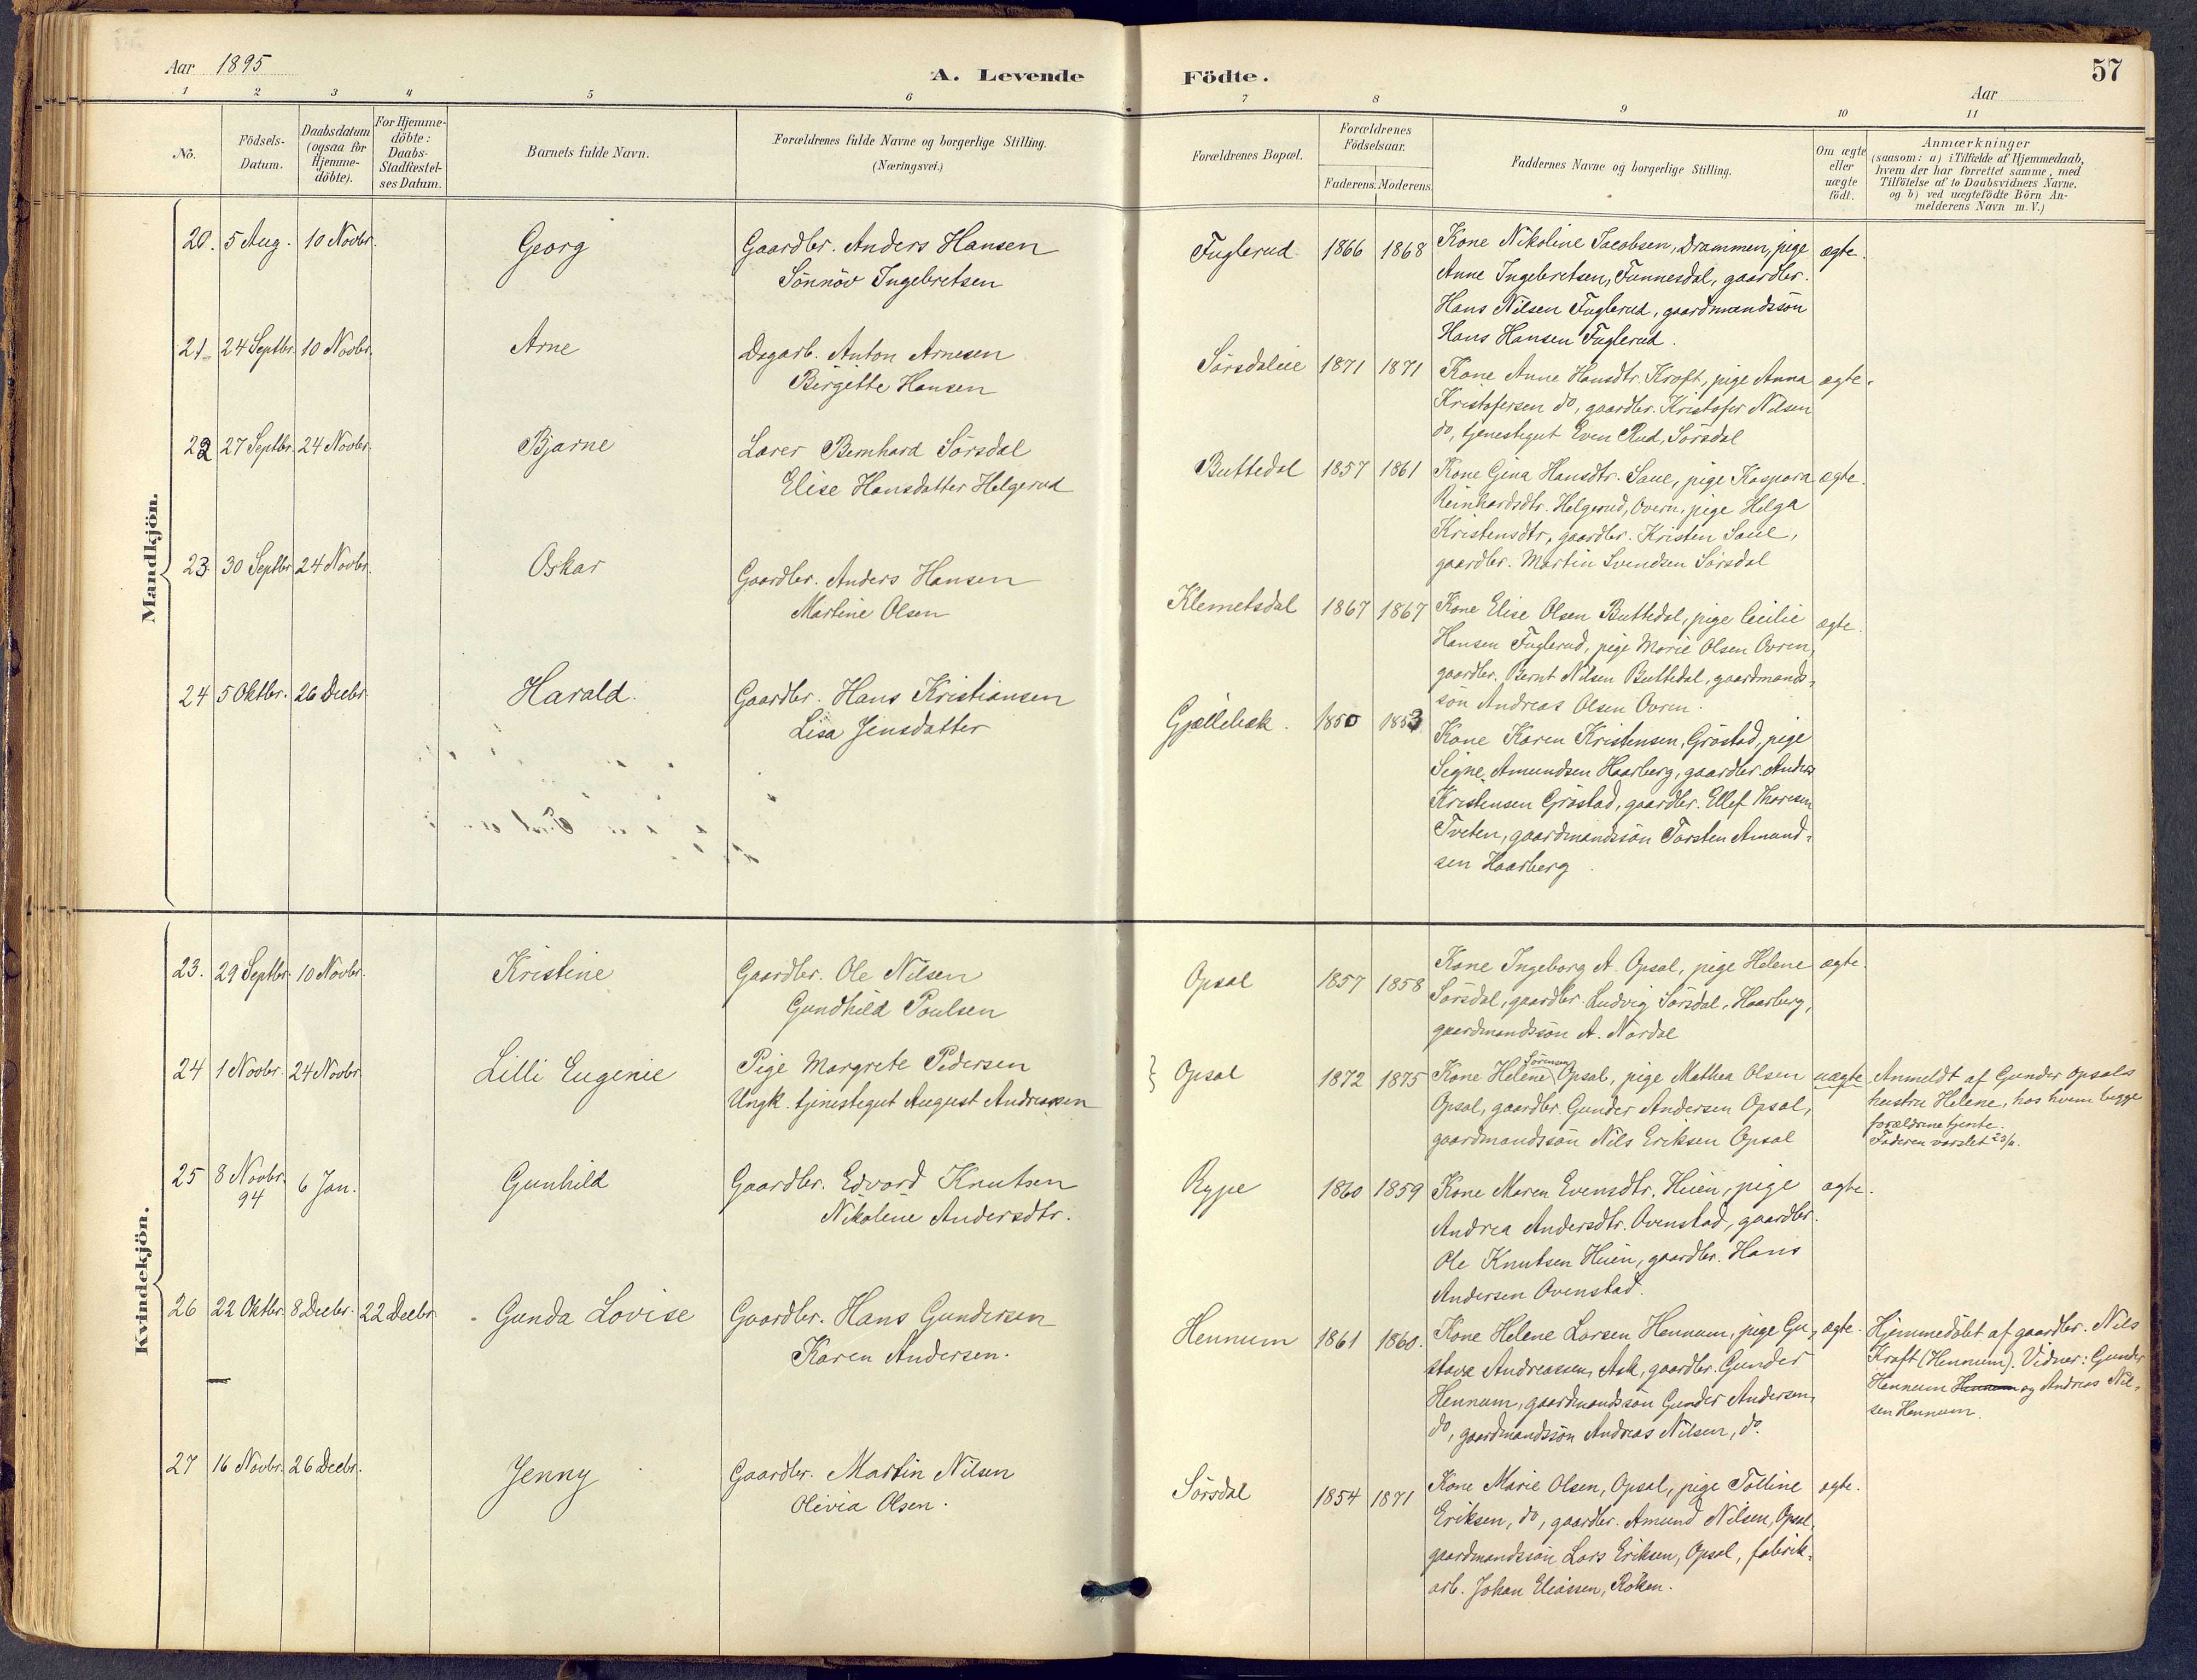 Aar 1895
A. Levende Födte.
57
Aar
1 2 3 4 5 6 7 8 9 10 11
No.
Födsels-Datum.
Daabsdatum (ogsaa for Hjemme-döbte).
For Hjemme-döbte: Daabs-Stadfæstel-ses Datum.
Barnets fulde Navn.
Forældrenes fulde Navne og borgerlige Stilling.
(Næringsvei.)
Forældrenes Bopæl.
Forældrenes Födselsaar.
Faderens. Moderens.
Faddernes Navne og borgerlige Stilling.
Om ægte eller uægte födt.
Anmærkninger
(saasom: a) i Tilfælde af Hjemmedaab,
hvem der har forrettet samme, med
Tilföielse af to Daabsvidners Navne.
og b) ved uægtefödte Börn An-
melderens Navn m.V.)
Mandkjön.
20. 5 Aug. 10 Novbr. Georg Gaardbr. Anders Hansen
Sönnöv Ingebretsen
Fuglerud 1866 1868 Kone Nikoline Jacobsen, Drammen, pige ægte.
Anne Ingebretsen, Tunnesdal, gaardbr.
Hans Nilsen Fuglerud, gaardmandssön
Hans Hansen Fuglerud.
21 24 Septbr. 10 Novbr. Arne Dagarb. Anton Arnesen
Birgitte Hansen
Sörsdaleie 1871 1871 Kone Anne Hansdtr. Kroft, pige Anna ægte.
Kristofersen do, gaardbr. Kristofer Nilsen
do, tjenestegut Even Rud, Sörsdal
22 27 Septbr. 24 Novbr. Bjarne Lærer Bernhard Sörsdal
Elise Hansdatter Helgerud
Buttedal 1857 1861 Kone Gina Hansdtr. Saue, pige Kaspara ægte.
Reinhardsdtr. Helgerud, Overn, pige Helga
Kristensdtr, gaardbr. Kristen Saue,
gaardbr. Martin Svendsen Sörsdal
23 30 Septbr 24 Novbr. Oskar Gaardbr. Anders Hansen
Martine Olsen
Klemetsdal 1867 1867 Kone Elise Olsen Buttedal, pige Cecilie ægte.
Hansen Fuglerud, pige Marie Olsen Ovren,
gaardbr. Bernt Nilsen Buttedal, gaardmands-
sön Andreas Olsen Ovren.
24 5 Oktbr. 26 Decbr Harald. Gaardbr. Hans Kristiansen
Lisa Jensdatter
Gjællebæk. 1850 1853 Kone Karen Kristensen, Gröstad, pige
Signe Amundsen Haarberg, gaardbr. Anders
Kristensen Gröstad, gaardbr. Ellef Thoresen
Tveten, gaardmandssön Torsten Amund-
sen Haarberg
Kvindekjön.
23. 29 Septbr. 10 Novbr. Kristine Gaardbr. Ole Nilsen
Gundhild Poulsen
Opsal 1857 1858 Kone Ingeborg A. Opsal, pige Helene ægte.
Sörsdal, gaardbr. Ludvig Sörsdal, Haarberg,
gaardmandssön A. Nordal
24 1 Novbr. 24 Novbr. Lilli Eugenie Pige Margrete Pedersen
Ungk. tjenestegut August Andreassen
Opsal 1872 1875 Kone Helene Sörensen Opsal, pige Mathea Olsen uægte
Opsal, gaardbr. Gunder Andersen Opsal,
gaardmandssön Nils Eriksen Opsal
Anmeldt af Gunder Opsals
hustru Helene, hos hvem begge
forældrene tjente.
Faderen varslet 23/11.
25 8 Novbr. 94 6 Jan. Gunhild Gaardbr. Edvard Knutsen
Nikoline Andersdtr.
Rype 1860 1859 Kone Maren Evensdtr. Huen, pige ægte.
Andrea Andersdtr. Ovenstad, gaardbr.
Ole Knutsen Huen, gaardbr. Hans
Andersen Ovenstad.
26 22 Oktbr. 8 Decbr. 22 Decbr. Gunda Lovise Gaardbr. Hans Gundersen
Karen Andersen.
Hennum 1861 1860. Kone Helene Larsen Hennum, pige Gu- ægte.
stava Andreassen, Ask, gaardbr. Gunder
Hennum, gaardmandssön Gunder Andersen,
do, gaardmandssön Andreas Nilsen, do.
Hjemmedöbt af gaardbr. Nils
Kraft (Hennum). Vidner: Gunder
Hennum Hennum og Andreas Nil-
sen Hennum.
27 16 Novbr. 26 Decbr. Jenny Gaardbr. Martin Nilsen
Olivia Olsen.
Sörsdal 1854 1871 Kone Marie Olsen, Opsal, pige Tolline ægte.
Eriksen, do, gaardbr. Amund Nilsen, Opsal,
gaardmandssön Lars Eriksen, Opsal, fabrik-
arb. Johan Eliassen, Röken.